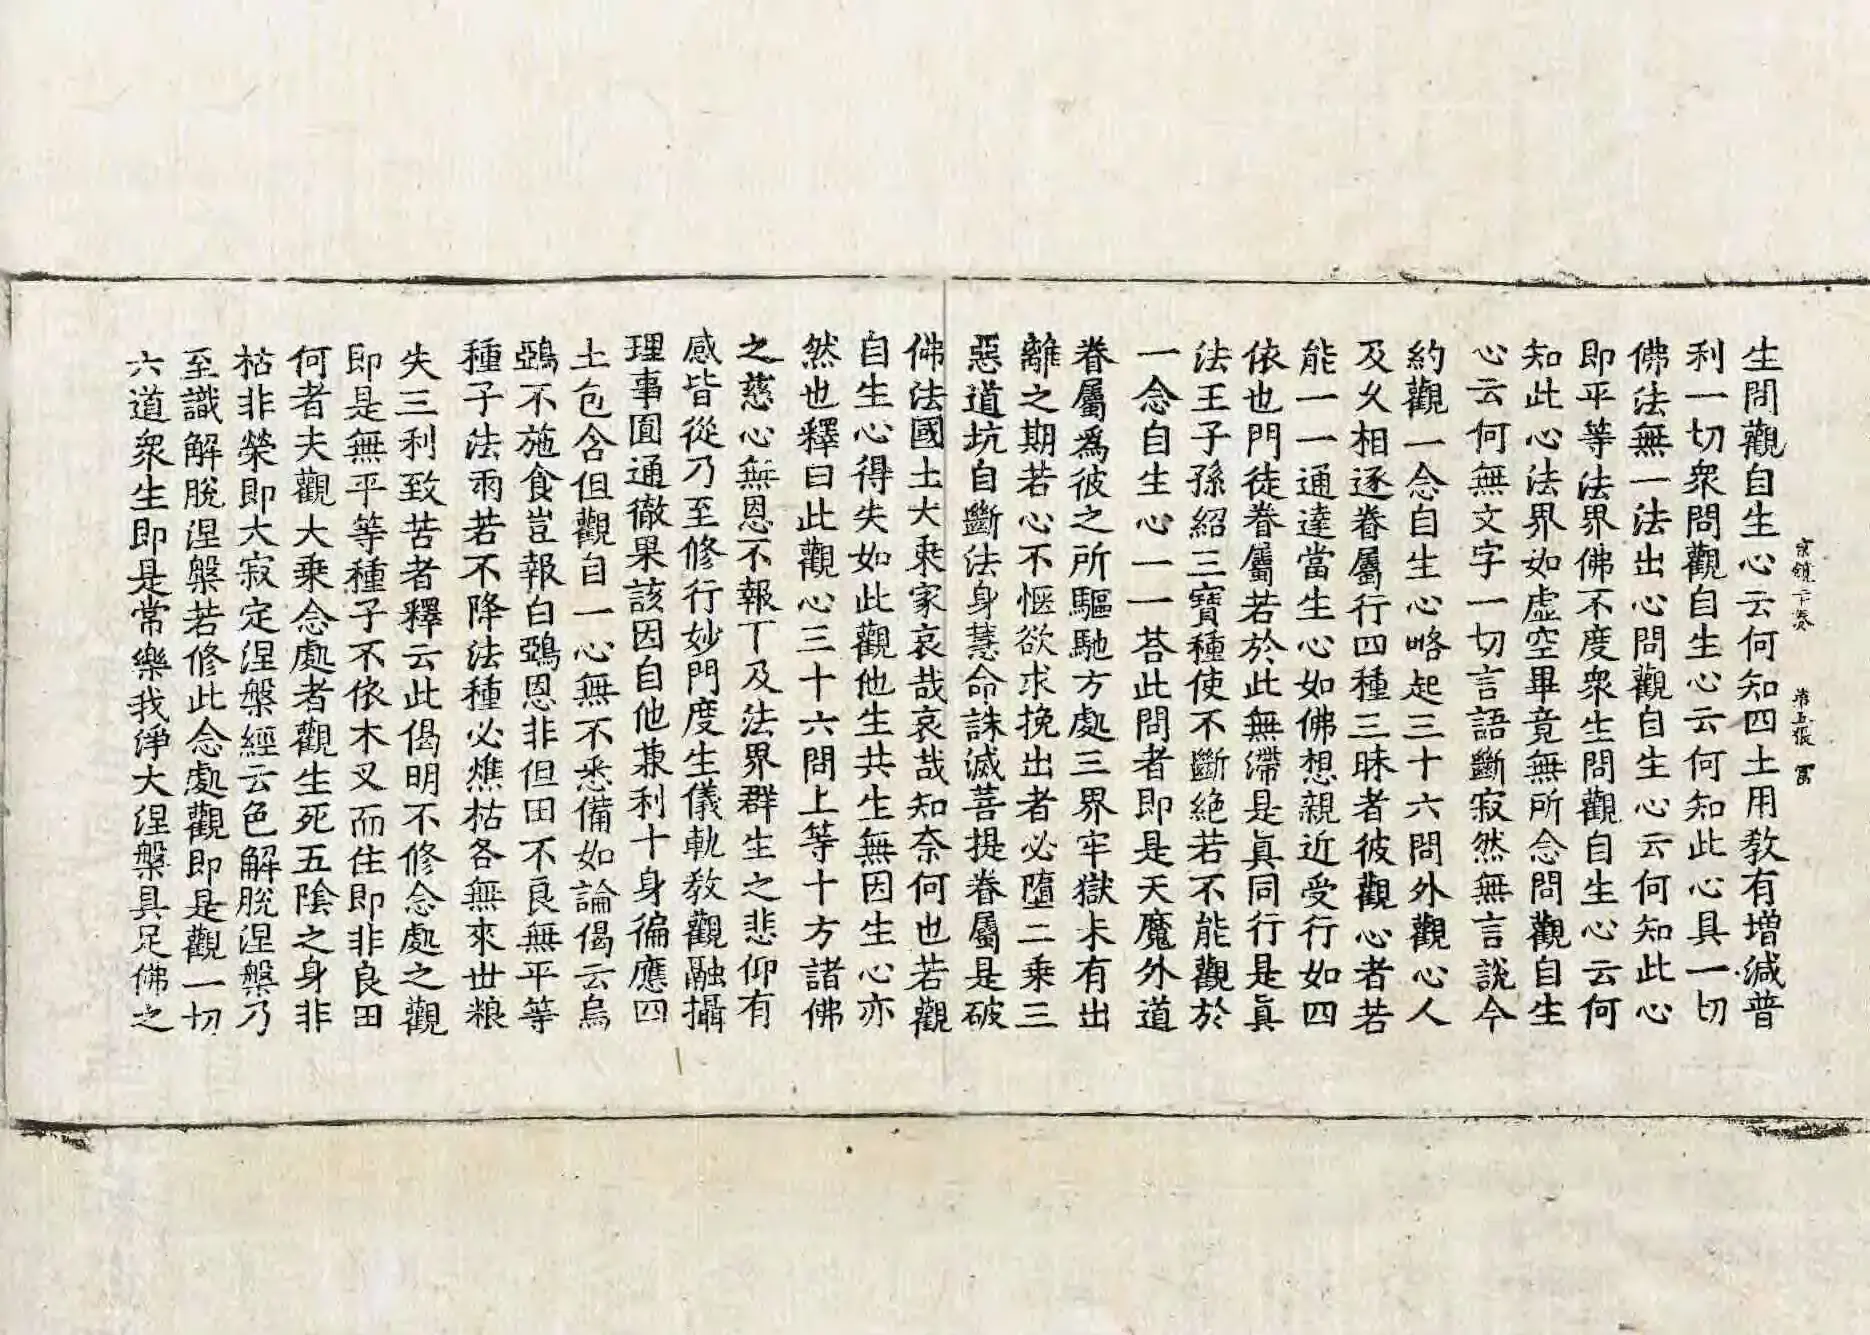 生問觀自生心云何知四土用教有增減普
利一切衆問觀自生心云何知此心具一切
佛法無一法出心問觀自生心云何知此心
即平等法界佛不度衆生問觀自生心云何
知此心法界如虛空畢竟無所念問觀自生
心云何無文字一切言語斷寂然無言說今
約觀一念自生心略起三十六問外觀心人
及久相逐眷屬行四種三昧者彼觀心者若
能一一通達當生心如佛想親近受行如四
依也門徒眷屬若於此無滯是眞同行是眞
法王子孫紹三寶種使不斷絕若不能觀於
一念自生心一一荅此問者即是天魔外道
眷屬爲彼之所驅馳方處三界牢獄未有出
離之期若心不愜欲求挽出者必墮二乘三
惡道坑自斷法身慧命誅滅菩提眷屬是破
佛法國土大乘家哀哉哀哉知奈何也若觀
自生心得失如此觀他生共生無因生心亦
然也釋曰此觀心三十六問上等十方諸佛
之慈心無恩不報下及法界群生之悲仰有
感皆從乃至修行妙門度生儀軌教觀融攝
理事圓通徹果該因自他兼利十身徧應四
土包含但觀自一心無不悉備如論偈云烏
鵶不施食豈報白鵶恩非但田不良無平等
種子法雨若不降法種必燋枯各無來世粮
失三利致苦者釋云此偈明不修念處之觀
即是無平等種子不依木叉而住即非良田
何者夫觀大乘念處者觀生死五陰之身非
枯非榮即大寂定涅槃經云色解脫涅槃乃
至識解脫涅槃若修此念處觀即是觀一切
六道衆生即是常樂我淨大涅槃具足佛之